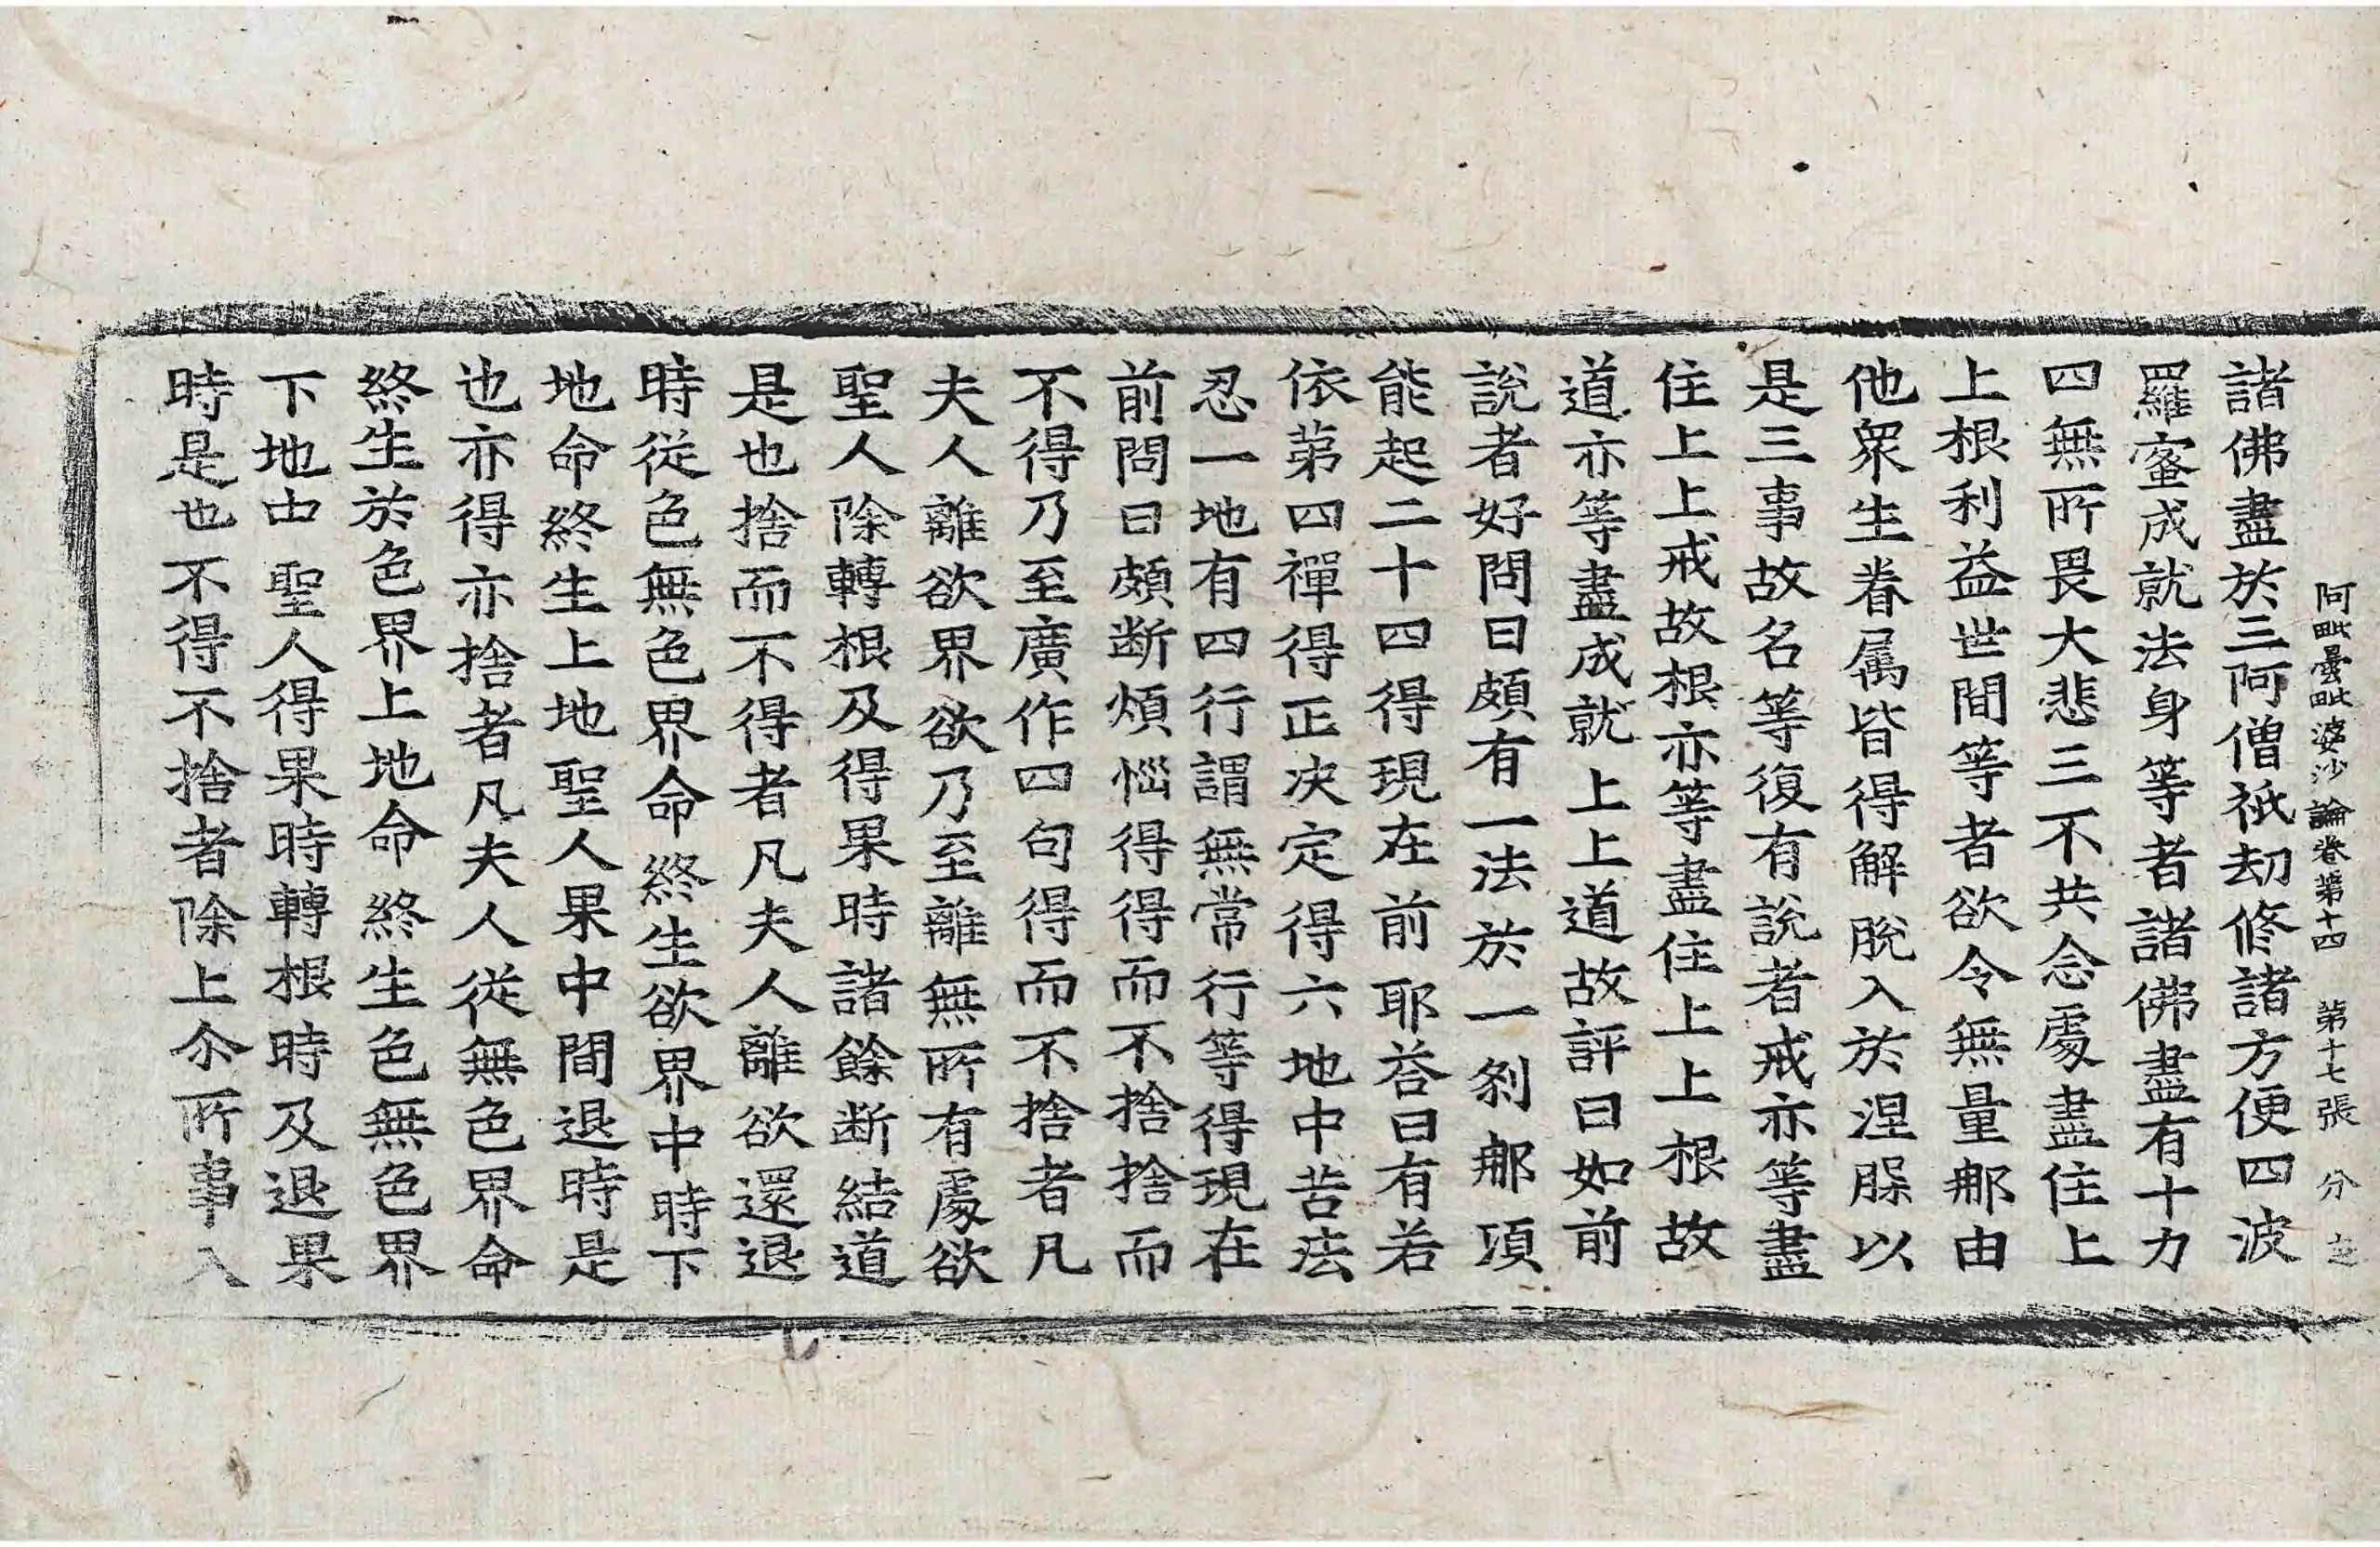 阿毗曇毗婆沙論卷第十四 第十七張 分
諸佛盡於三阿僧祇劫修諸方便四波
羅蜜成就法身等者諸佛盡有十力
四無所畏大悲三不共念處盡住上
上根利益世間等者欲令無量那由
他衆生眷属皆得解脫入於涅槃以
是三事故名等復有說者戒亦等盡
住上上戒故根亦等盡住上上根故
道亦等盡成就上上道故評曰如前
說者好問曰頗有一法於一剎那頃
能起二十四得現在前耶荅曰有若
依第四禪得正决定得六地中苦法
忍一地有四行謂無常行等得現在
前問曰頗断煩惱得得而不捨捨而
不得乃至廣作四句得而不捨者凡
夫人離欲界欲乃至離無所有處欲
聖人除轉根及得果時諸餘断結道
是也捨而不得者凡夫人離欲還退
時從色無色界命終生欲界中時下
地命終生上地聖人果中間退時是
也亦得亦捨者凡夫人從無色界命
終生於色界上地命終生色無色界
下地中聖人得果時轉根時及退果
時是也不得不捨者除上尒所事入